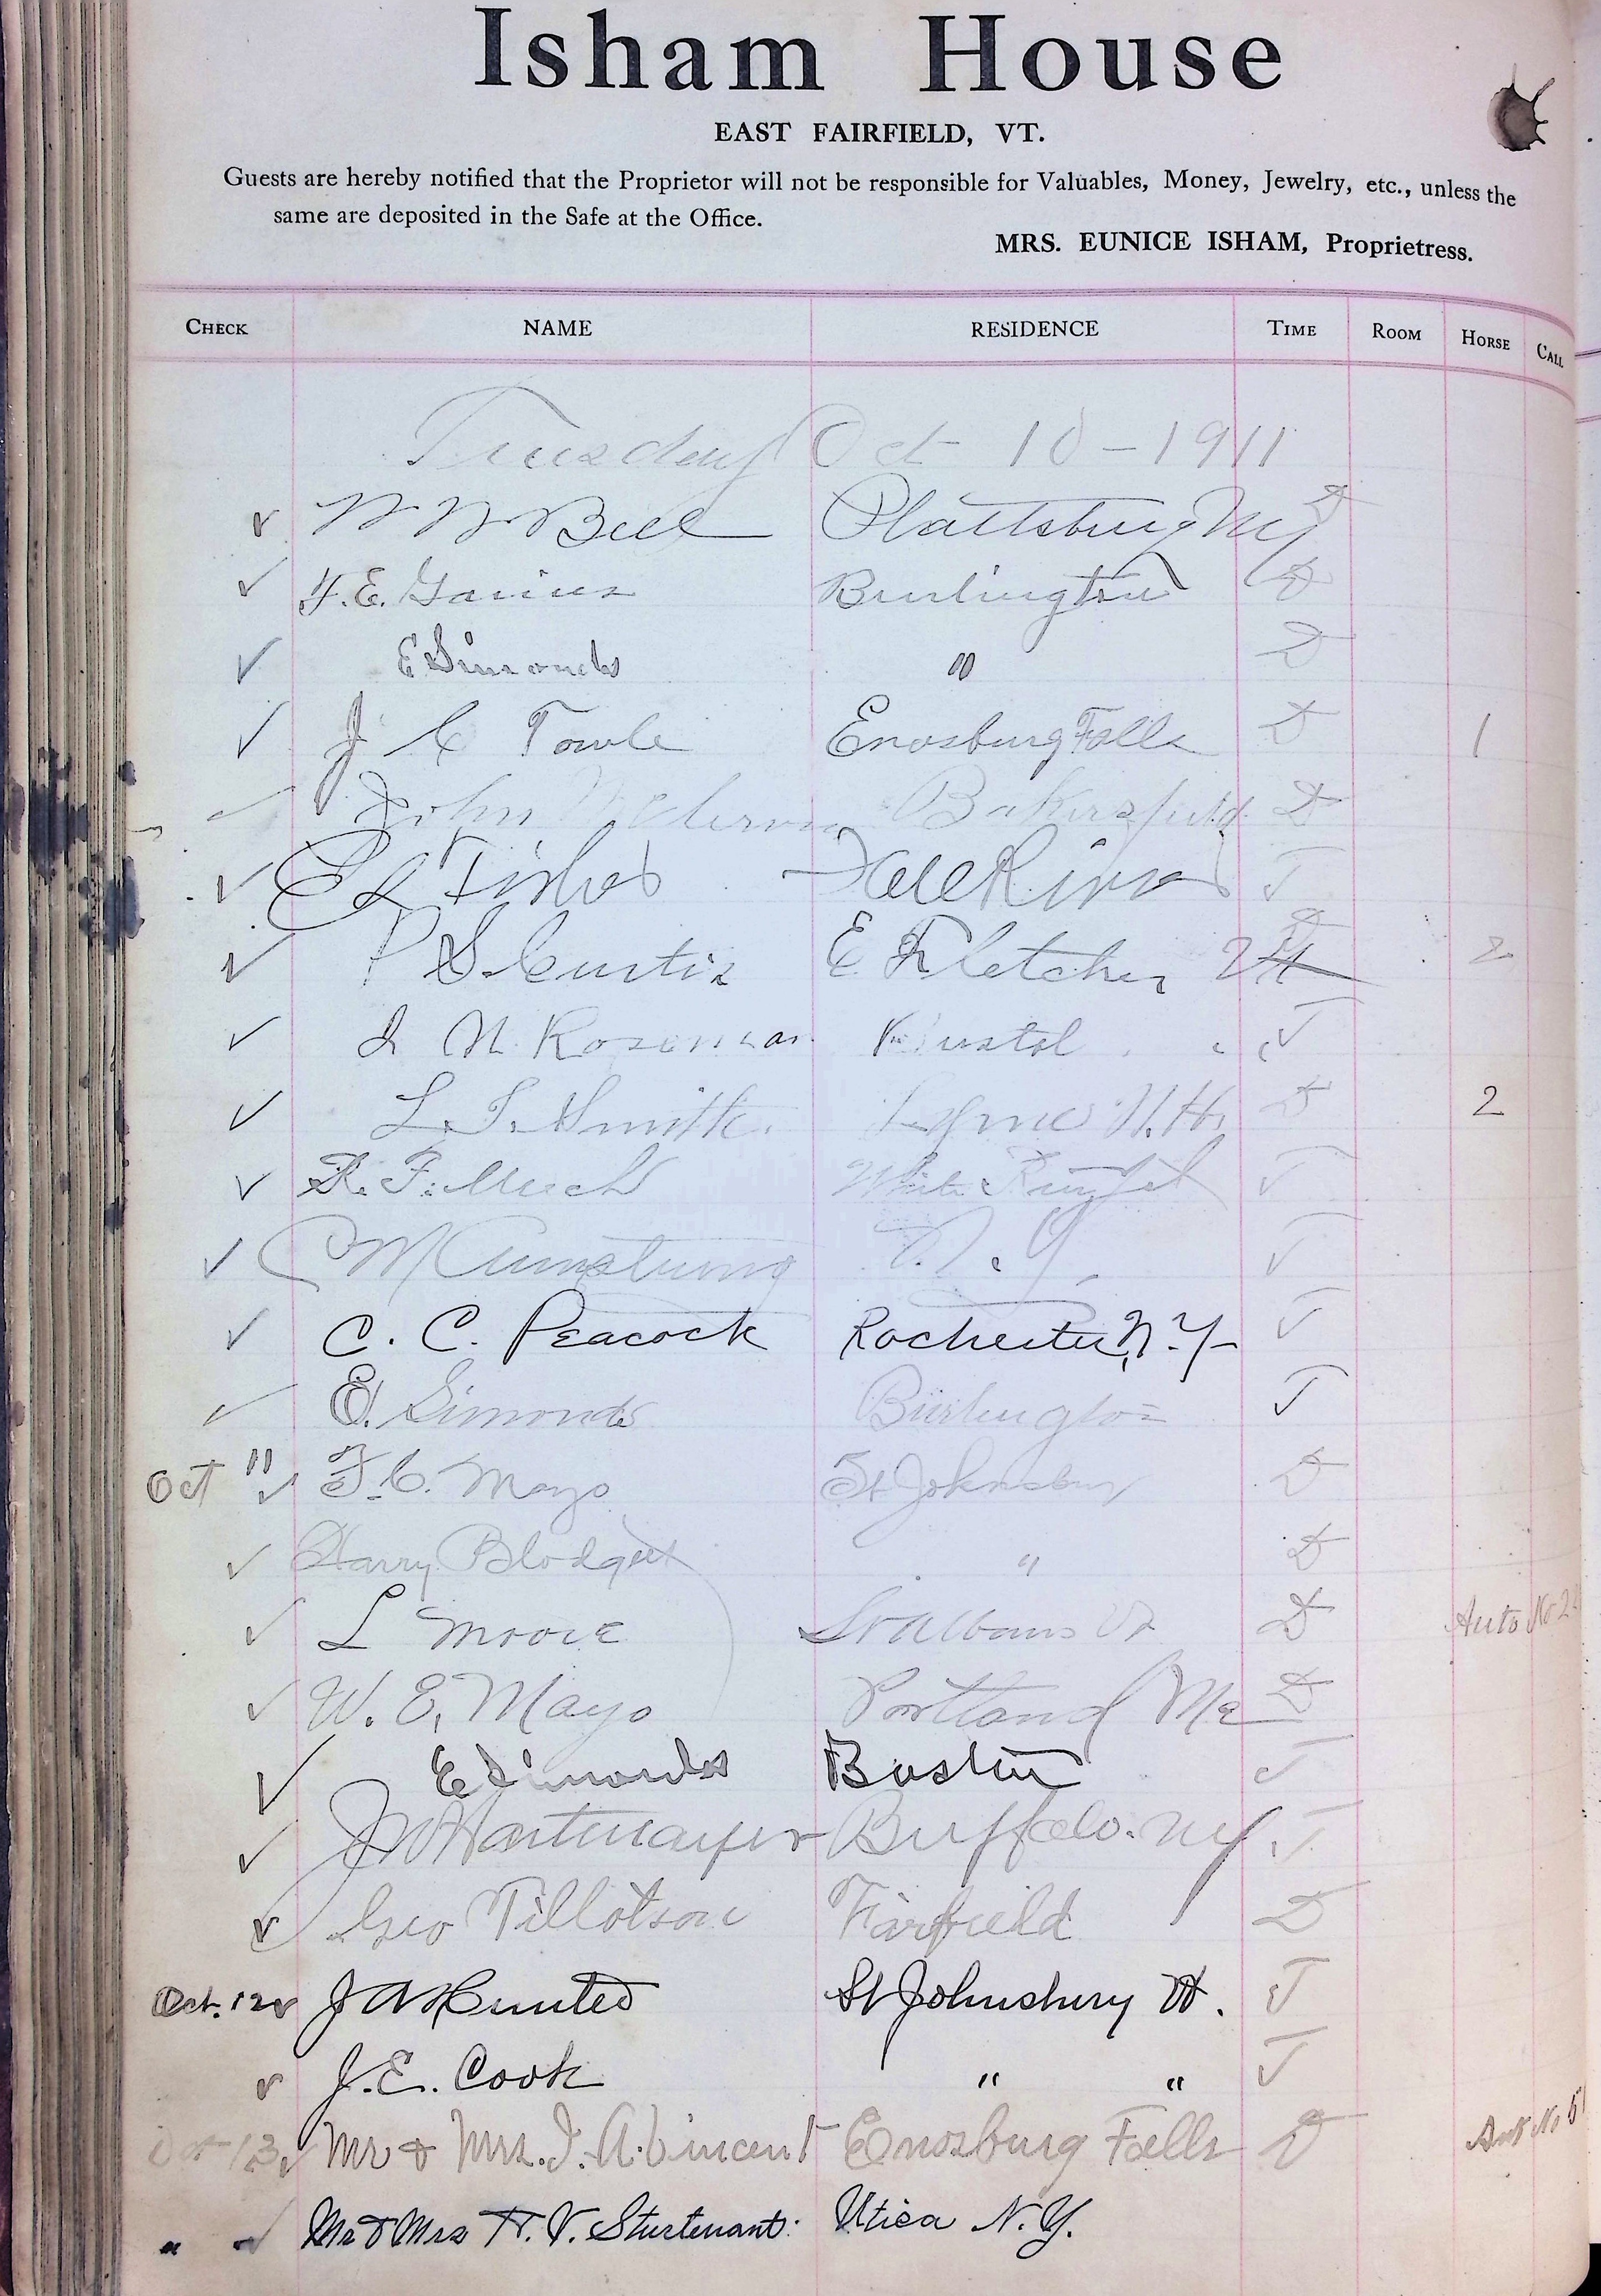 Isham House
EAST FAIRFIELD, VT.
Guests are hereby notified that the Proprietor will not be responsible for Valuables, Money, Jewelry, etc., unless the
same are deposited in the Safe at the Office.
MRS. EUNICE ISHAM, Proprietress.
CHECK NAME RESIDENCE TIME ROOM HORSE CALL
Tuesday Oct 10-1911
Bell Plattsburg NY D
F.E. Burlington D
E Simonds " D
J C Towle Enosburg Falls D 1
John Bakersfield D
Ed T
P S. Curtis E Fletcher Vt D 2
N. Roseman Bristol " T
L. T. Smith Lyme N.H. D 2
F. White T
C M Armstrong N.Y. T
C. C. Peacock Rochester, N.Y. T
E. Simonds Burlington T
Oct 11 F.C. Mayo St Johnsbury D
Harry Blodgett " D
L Moore St Albans Vt D Auto No 2
W. E. Mayo Portland Me D
E Simonds Boston T
Hartmayer Buffalo. NY T
Geo Tillotson Fairfield D
Oct. 12 J St Johnsbury Vt. T
J. E. Cook " " T
Oct 13 Mr & Mrs. I. A. Vincent Enosburg Falls D
" Mr & Mrs H. V. Sturtevant Utica N.Y.